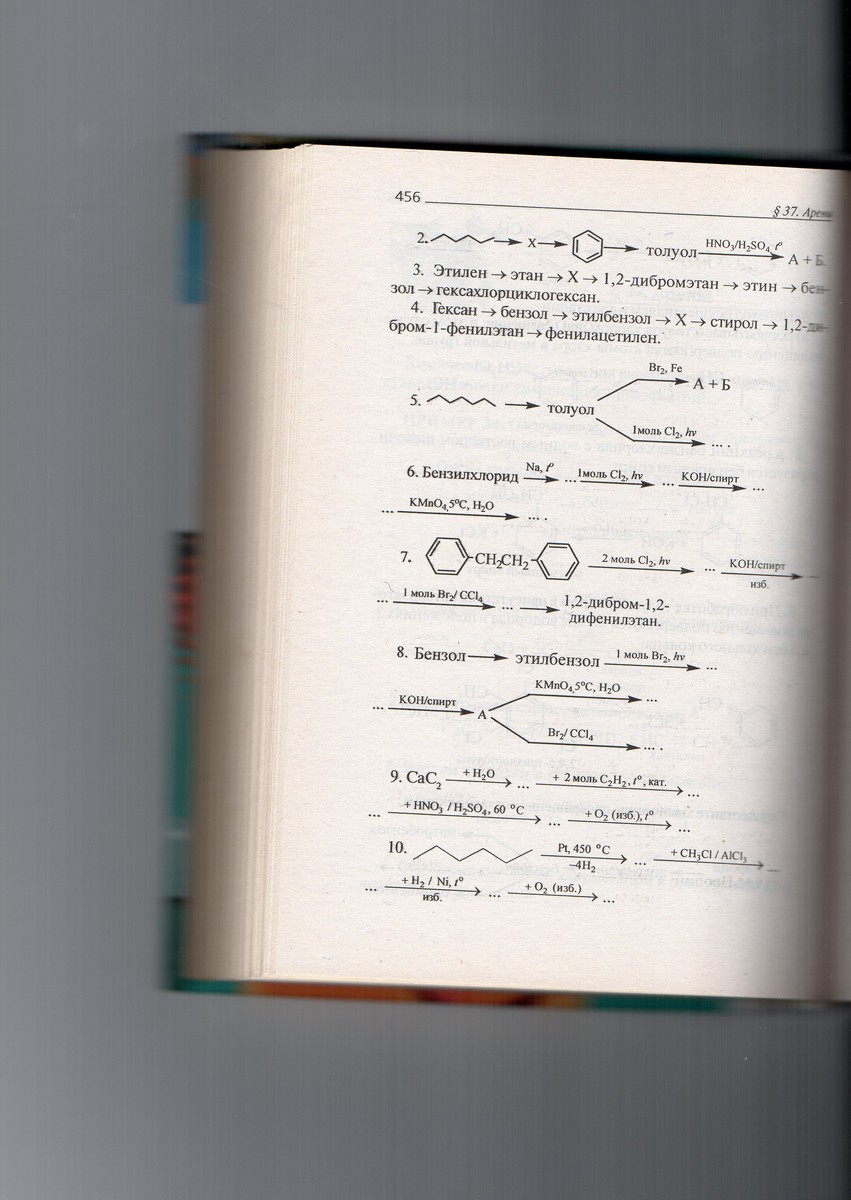 456 § 37. Арены
2. → X → → толуол HNO₃/H₂SO₄, t° → А + Б.
3. Этилен → этан → X → 1,2-дибромэтан → этин → бен-
зол → гексахлорциклогексан.
4. Гексан → бензол → этилбензол → X → стирол → 1,2-ди-
бром-1-фенилэтан → фенилацетилен.
Br₂, Fe → А + Б
5. → толуол
1моль Cl₂, hν → ... .
6. Бензилхлорид Na, t° → ... 1моль Cl₂, hν → ... KOH/спирт → ...
... KMnO₄,5°C, H₂O → ... .
7. -CH₂CH₂- 2 моль Cl₂, hν → ... KOH/спирт изб. →
... 1 моль Br₂/ CCl₄ → ... → 1,2-дибром-1,2-
дифенилэтан.
8. Бензол → этилбензол 1 моль Br₂, hν → ...
KMnO₄,5°C, H₂O → ...
... KOH/спирт → А
Br₂/ CCl₄ → ... .
9. CaC₂ + H₂O → ... + 2 моль C₂H₂, t°, кат. → ...
... + HNO₃ / H₂SO₄, 60 °C → ... + O₂ (изб.), t° → ...
10. Pt, 450 °C –4H₂ → ... + CH₃Cl / AlCl₃ →
... + H₂ / Ni, t° изб. → ... + O₂ (изб.) → ...